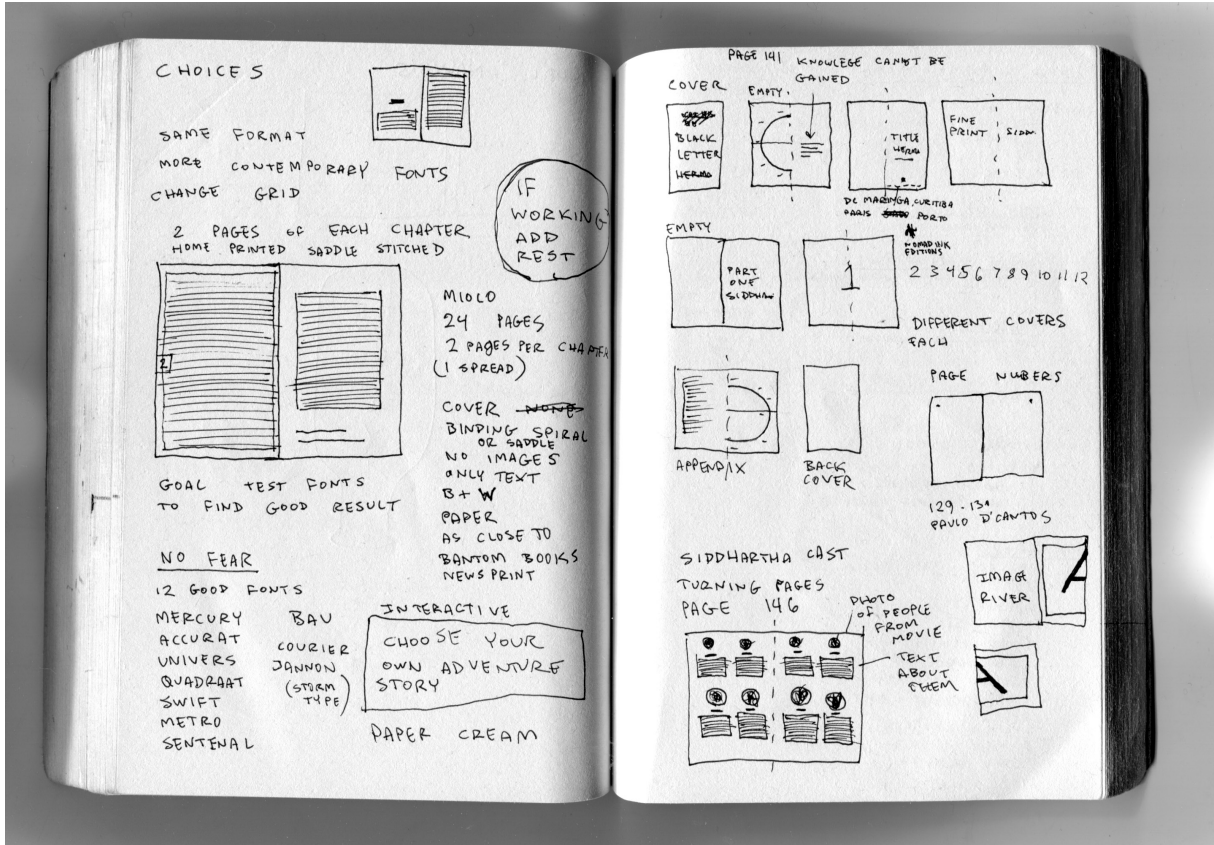 CHOICES
SAME FORMAT
MORE CONTEMPORARY FONTS
CHANGE GRID
IF
WORKING
ADD
REST
2 PAGES OF EACH CHAPTER
HOME PRINTED SADDLE STITCHED
2
MIOLO
24 PAGES
2 PAGES PER CHAPTER
(1 SPREAD)
COVER NONE
BINDING SPIRAL
OR SADDLE
NO IMAGES
ONLY TEXT
B + W
PAPER
AS CLOSE TO
BANTOM BOOKS
NEWSPRINT
GOAL TEST FONTS
TO FIND GOOD RESULT
NO FEAR
12 GOOD FONTS
MERCURY
ACCURAT
UNIVERS
QUADRAAT
SWIFT
METRO
SENTENAL
BAU
COURIER
JANNON
(STORM
TYPE)
INTERACTIVE
CHOOSE YOUR
OWN ADVENTURE
STORY
PAPER CREAM
PAGE 141
KNOWLEGE CANNT BE
GAINED
COVER
BLACK
LETTER
HERMA
EMPTY
TITLE
HERMA
FINE
PRINT
SIDDA
DC MARINGA, CURITIBA
PARIS PORTO
NOMAD INK
EDITIONS
EMPTY
PART
ONE
SIDDHA
1
2 3 4 5 6 7 8 9 10 11 12
DIFFERENT COVERS
EACH
APPENDIX
BACK
COVER
PAGE NUBERS
129-131
PAULO D'CANTOS
IMAGE
RIVER
A
A
SIDDHARTHA CAST
TURNING PAGES
PAGE 146
PHOTO
OF PEOPLE
FROM
MOVIE
TEXT
ABOUT
THEM